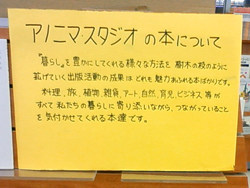 アノニマ・スタジオ の本について
"暮らし"を豊かにしてくれる様々な方法を 樹木の枝のように
拡げていく出版活動の成果は どれも魅力あふれる本ばかりです。
料理、旅、植物、雑貨、アート、自然、育児、ビジネス、等が
すべて 私たちの暮らしに寄り添いながら、つながっていること
を気付かせてくれる本達です。